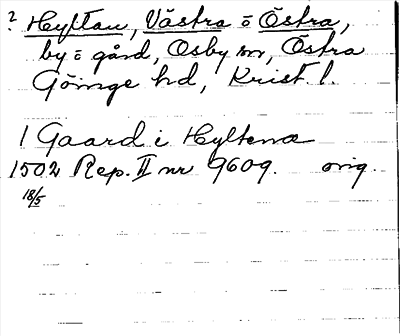 ? Hyltan, Västra o Östra,
by o gård, Osby sn, Östra
Göinge hd, Krist. l.
1 Gaard i Hyltena
1502 Rep. II nr 9609. orig.
18/5